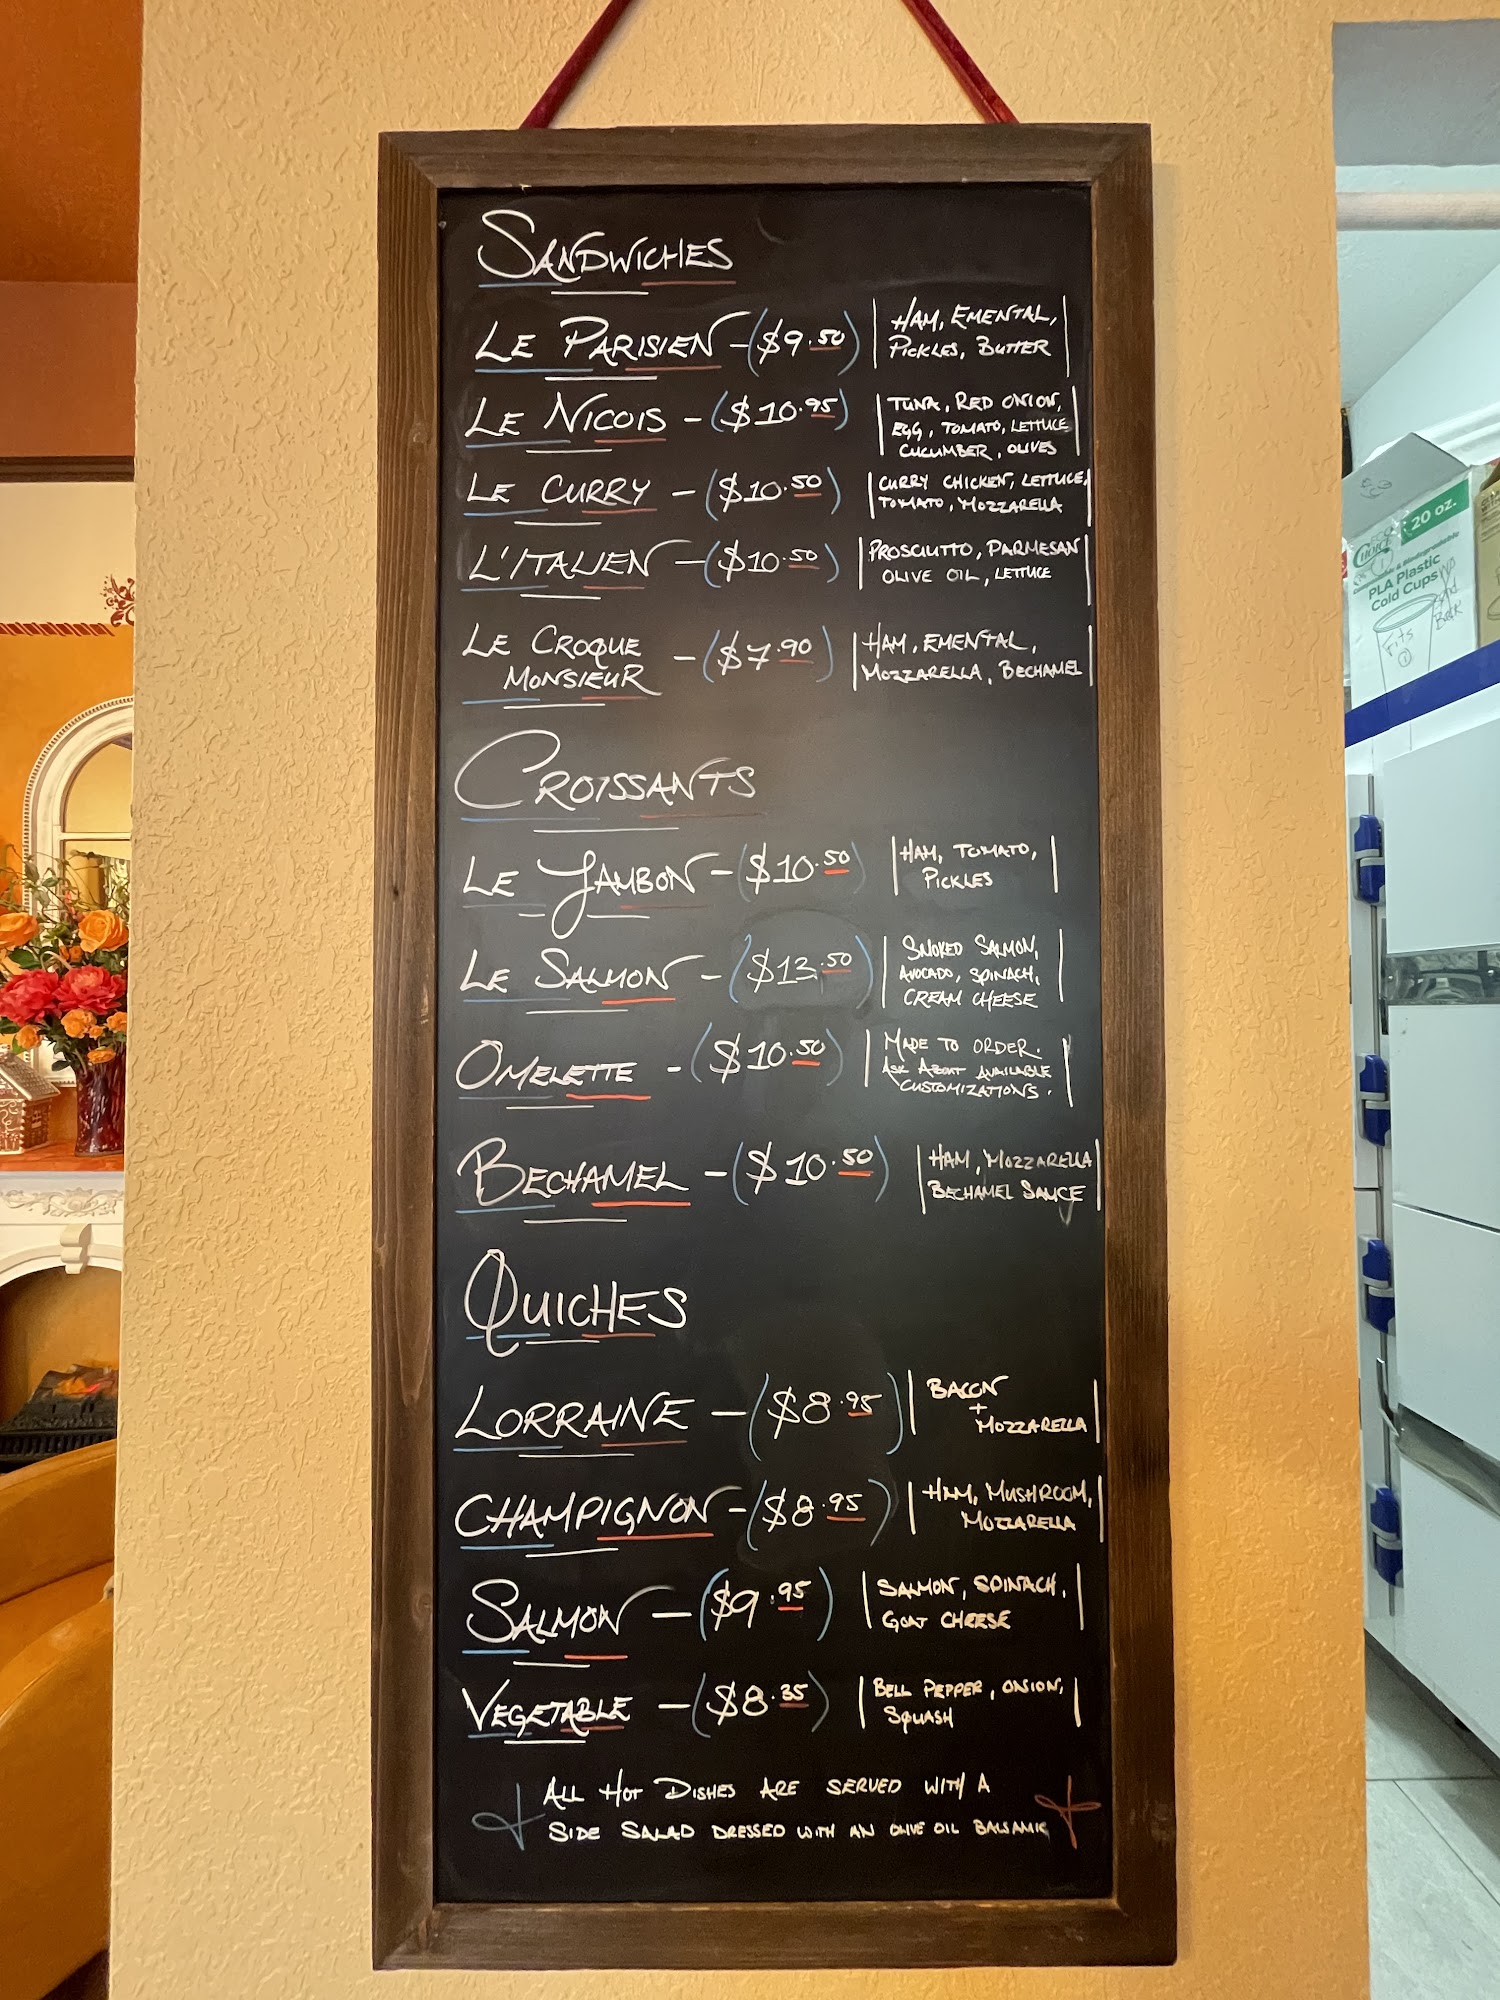 SANDWICHES
LE PARISIEN - ($9.50) | HAM, EMENTAL, |
PICKLES, BUTTER
LE NICOIS - ($10.95) | TUNA, RED ONION, |
EGG, TOMATO, LETTUCE
CUCUMBER, OLIVES
LE CURRY - ($10.50) | CURRY CHICKEN, LETTUCE, |
TOMATO, MOZZARELLA
L'ITALIEN - ($10.50) | PROSCIUTTO, PARMESAN |
OLIVE OIL, LETTUCE
LE CROQUE
MONSIEUR - ($7.90) | HAM, EMENTAL, |
MOZZARELLA, BECHAMEL
CROISSANTS
LE JAMBON - ($10.50) | HAM, TOMATO, |
PICKLES
LE SALMON - ($13.50) | SMOKED SALMON, |
AVOCADO, SPINACH,
CREAM CHEESE
OMELETTE - ($10.50) | MADE TO ORDER. |
ASK ABOUT AVAILABLE
CUSTOMIZATIONS.
BECHAMEL - ($10.50) | HAM, MOZZARELLA |
BECHAMEL SAUCE
QUICHES
LORRAINE - ($8.95) | BACON |
+
MOZZARELLA
CHAMPIGNON - ($8.95) | HAM, MUSHROOM, |
MOZZARELLA
SALMON - ($9.95) | SALMON, SPINACH, |
GOAT CHEESE
VEGETABLE - ($8.35) | BELL PEPPER, ONION, |
SQUASH
ALL HOT DISHES ARE SERVED WITH A
SIDE SALAD DRESSED WITH AN OLIVE OIL BALSAMIC
20 oz.
PLA Plastic
Cold Cups
Fits